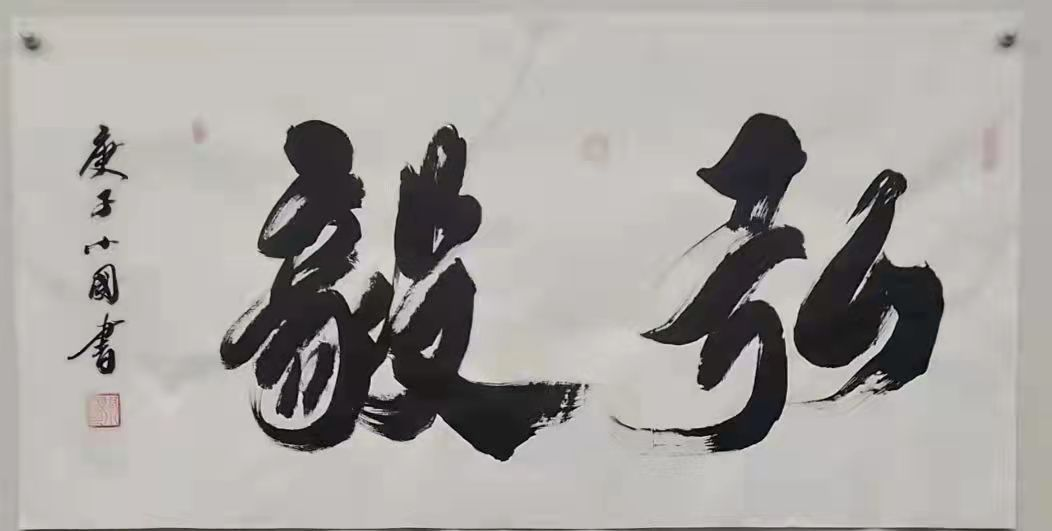 弘毅
庚子小國書